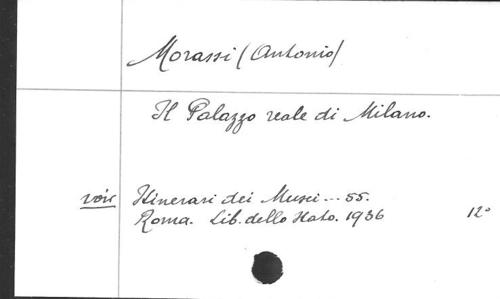 Morassi (Antonio)
Il Palazzo reale di Milano.
voir Itinerari dei Musei... 55.
Roma. Lib. dello Stato. 1936 12°